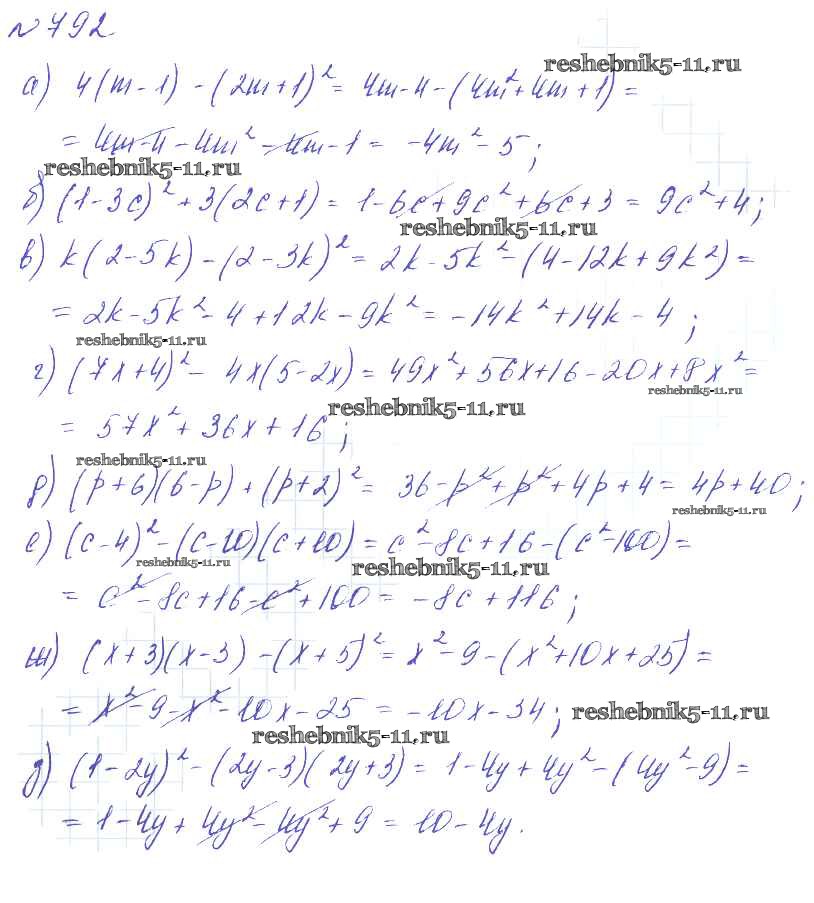 № 792.
reshebnik5-11.ru
а) 4(m-1) - (2m+1)² = 4m-4-(4m²+4m+1) =
= 4m-4-4m²-4m-1 = -4m²-5;
reshebnik5-11.ru
б) (1-3c)²+3(2c+1) = 1-6c+9c²+6c+3 = 9c²+4;
reshebnik5-11.ru
в) k(2-5k)-(2-3k)² = 2k-5k²-(4-12k+9k²) =
= 2k-5k²-4+12k-9k² = -14k²+14k-4;
reshebnik5-11.ru
г) (7x+4)² - 4x(5-2x) = 49x²+56x+16-20x+8x² =
reshebnik5-11.ru
reshebnik5-11.ru
= 57x²+36x+16;
reshebnik5-11.ru
д) (p+6)(6-p)+(p+2)² = 36-p²+p²+4p+4 = 4p+40;
reshebnik5-11.ru
е) (c-4)²-(c-10)(c+10) = c²-8c+16-(c²-100) =
reshebnik5-11.ru
reshebnik5-11.ru
= c²-8c+16-c²+100 = -8c+116;
ж) (x+3)(x-3)-(x+5)² = x²-9-(x²+10x+25) =
= x²-9-x²-10x-25 = -10x-34;
reshebnik5-11.ru
reshebnik5-11.ru
з) (1-2y)²-(2y-3)(2y+3) = 1-4y+4y²-(4y²-9) =
= 1-4y+4y²-4y²+9 = 10-4y.